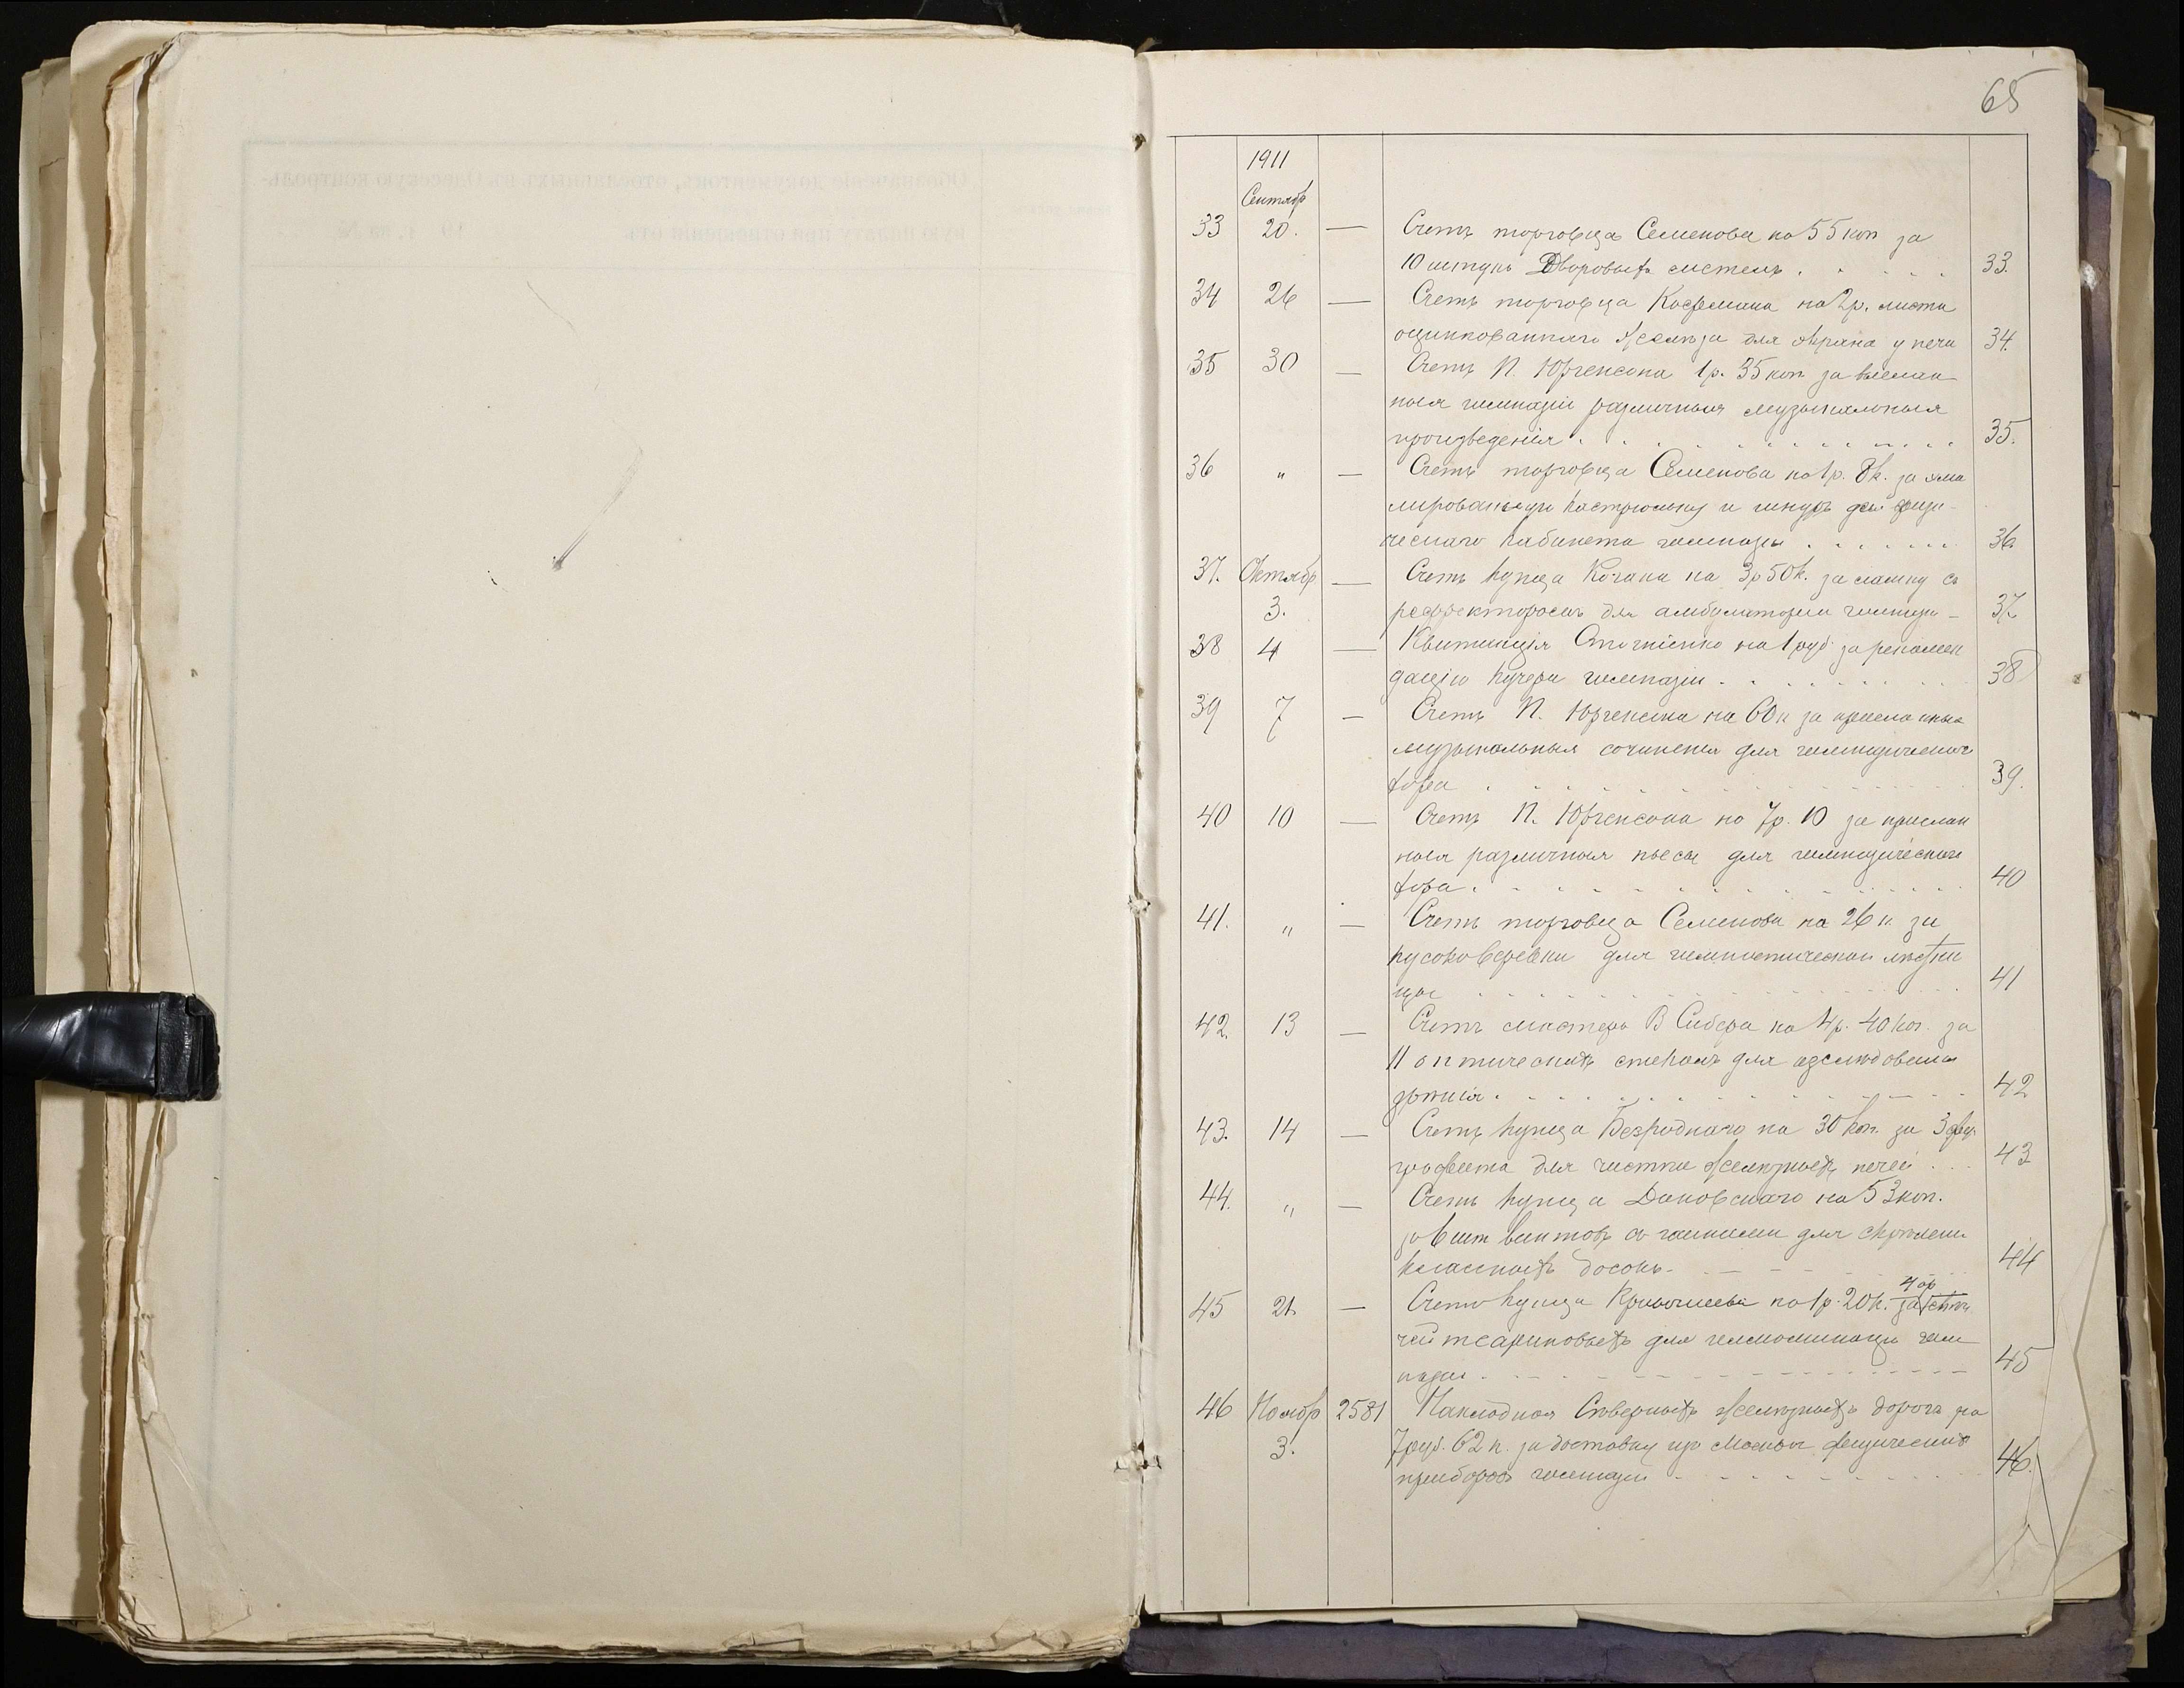 65
1911
Сентябр
33 20. — Счетъ торговца Семенова на 55 коп за
10 штукъ Дворовыхъ метелъ . . . . . 33.
34 26 — Счетъ торговца на 2р. листа
оцинкованнаго желѣза для экрана у печи 34.
35 30 — Счетъ П. Юргенсона 1р. 35 коп. за выслан
ныя гимназіи различныя музыкальныя
произведенія . . . . . . . . . . 35.
36 „ — Счетъ торговца Семенова на 1р. 8к. за эма
лированную кастрюльку и шнуръ для физи-
ческаго кабинета гимназіи . . . . . . 36
37. Октябр — Счетъ купца Когана на 3р 50к. за лампу съ
3. рефлекторомъ для амбулаторіи гимнази- 37.
38 4 — Квитанція на 1 руб за рекомен
дацію кучера гимназіи . . . . . . . . 38
39 7 — Счетъ П. Юргенсона на 60к за присланныя
музыкальныя сочиненія для гимназическаго
хора . . . . . . . . . . . . . 39.
40 10 — Счетъ П. Юргенсона на 7р. 10 за прислан
ныя различныя пьесы для гимназическаго
хора . . . . . . . . . . . . . 40
41. „ — Счетъ торговца Семенова на 26 к. за
кусокъ веревки для гимнастической лѣстни
цы . . . . . . . . . . . . . 41
42. 13 — Счетъ мастера В Сибера на 4р. 40 коп. за
11 оптическихъ стеколъ для изслѣдованія
зрѣнія . . . . . . . . . . . . . 42
43. 14 — Счетъ купца Безроднаго на 30 коп. за 3 фун
графита для чистки желѣзныхъ печей . . . 43
44. „ — Счетъ купца Дановскаго на 53 коп.
за 6 шт винтовъ съ гайками для скрѣпленія
классныхъ досокъ - . — - - - 44
45 21. — Счетъ купца Кривошеева на 1р. 20к. за
чей стеариновыхъ для иллюминаціи гим
назіи . . . . . . . . . . . . . 45
46 Ноябр 2581 Накладная Сѣверныхъ желѣзныхъ дорогъ на
3. 7 руб. 62 к. за доставку изъ Москвы физическихъ
приборовъ гимназіи - - - - - - - - 46.